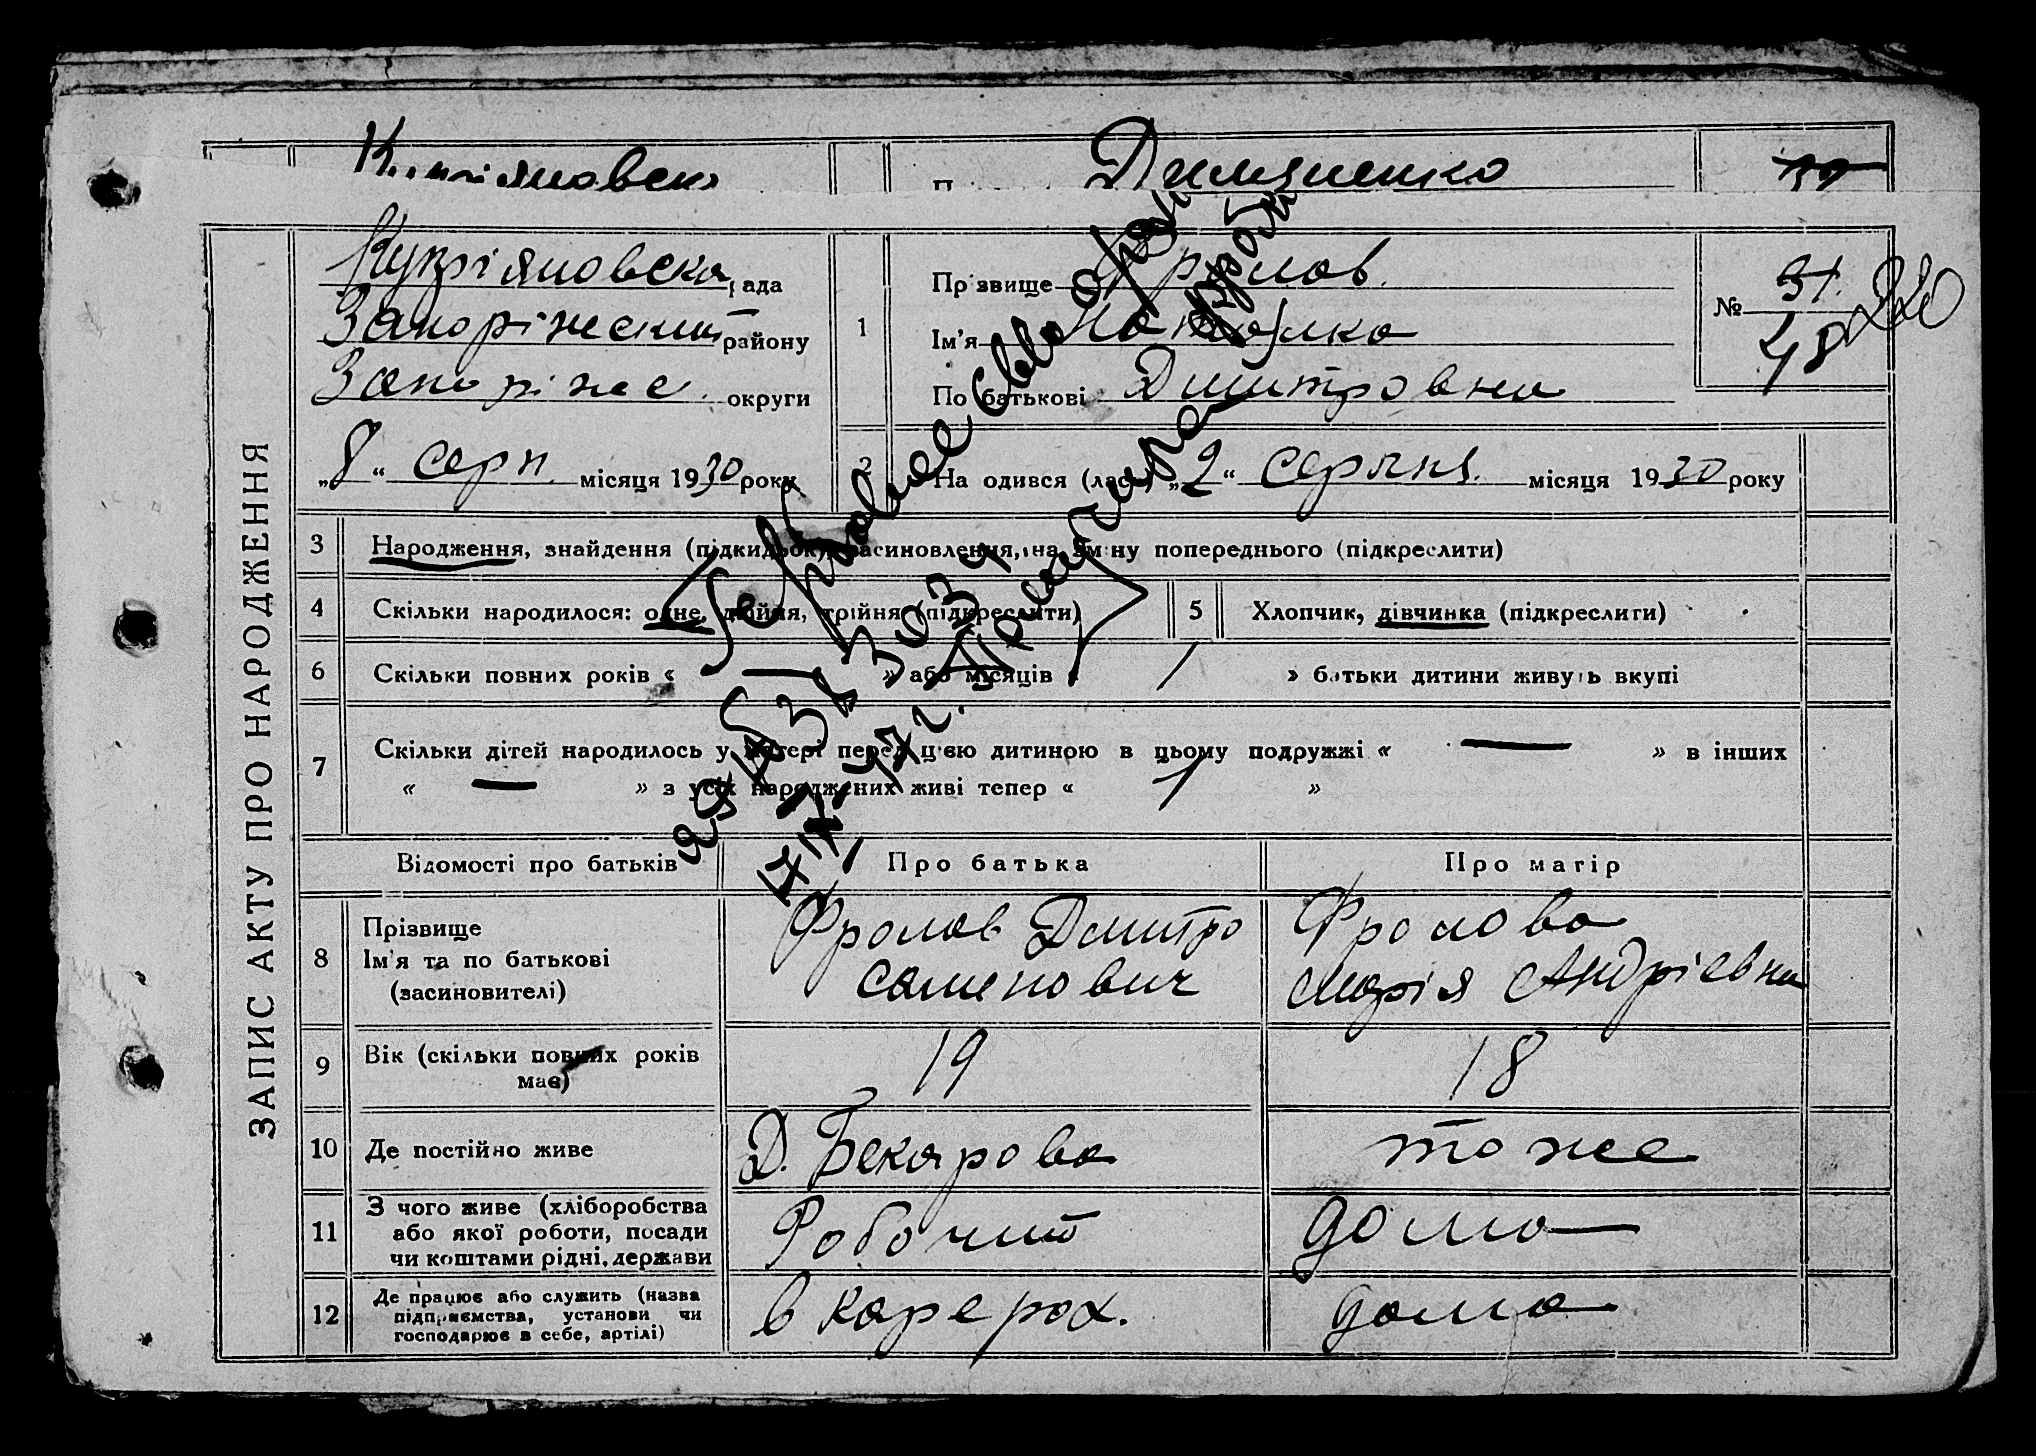 Димяненко
Купріяновска рада
Запоріжский району
Запоріже округи
„8“ серп. місяця 1930 року
1
Прізвище Фролов
Ім'я
По батькові Дмитровна
№ 51.
48
220
2 На одився (лась) „2“ серпня місяця 1930 року
ЗАПИС АКТУ ПРО НАРОДЖЕННЯ
3 Народження, знайдення (підкидьок), засиновлення, на зміну попереднього (підкреслити)
4 Скільки народилося: одне, двійня, трійня (підкреслити)
5 Хлопчик, дівчинка (підкреслити)
6 Скільки повних років « — » або місяців « 1 » батьки дитини живуть вкупі
7 Скільки дітей народилось у матері перед цією дитиною в цьому подружжі « — » в інших
« — » з усіх народжених живі тепер « 1 »
Повторное свво о рожд
Відомості про батьків
Про батька
Про матір
8 Прізвище
Ім'я та по батькові
(засиновителі)
Фролов Дмитро
Семенович
Фролова
Марія Андріевна
9 Вік (скільки повних років
має)
19
18
10 Де постійно живе
Д. Бекарова
тоже
11 З чого живе (хліборобства
або якої роботи, посади
чи коштами рідні, держави
Робочий
дома
12 Де працює або служить (назва
підприємства, установи чи
господарює в себе, артілі)
в карерах.
дома